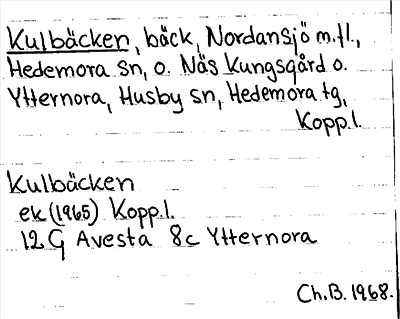 Kulbäcken, bäck, Nordansjö m.fl.,
Hedemora sn, o. Näs Kungsgård o.
Ytternora, Husby sn, Hedemora tg,
Kopp.l.
Kulbäcken
ek (1965) Kopp.l.
12 G Avesta 8c Ytternora
Ch.B. 1968.